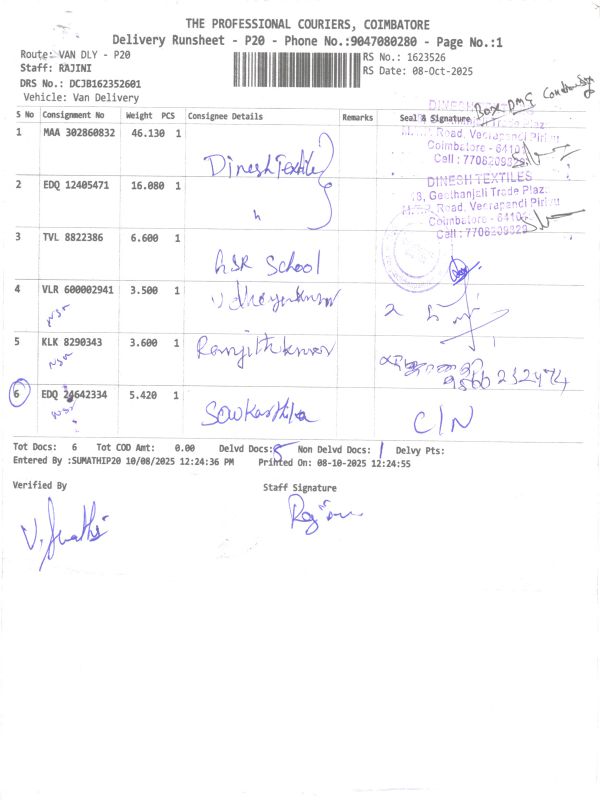 THE PROFESSIONAL COURIERS, COIMBATORE
Delivery Runsheet - P20 - Phone No.:9047080280 - Page No.:1
Route: VAN DLY - P20
Staff: RAJINI
DRS No.: DCJB162352601
Vehicle: Van Delivery
RS No.: 1623526
RS Date: 08-Oct-2025
Box DMG
S No Consignment No Weight PCS Consignee Details Remarks Seal & Signature
1 MAA 302860832 46.130 1 Dinesh Textile
DINESH TEXTILES
Road, Veerapandi Pirivu
Coimbatore - 64101
Cell : 7708209323
2 EDQ 12405471 16.080 1 "
DINESH TEXTILES
18, Geethanjali Trade Plaz
Road, Veerapandi Pirivu
Coimbatore - 64101
Cell : 7708209323
3 TVL 8822386 6.600 1 School
4 VLR 600002941 3.500 1
NSR
5 KLK 8290343 3.600 1 Ranjithkumar
NSR
9566 232474
6 EDQ 24642334 5.420 1 Sowkarthika C/N
NSR
Tot Docs: 6 Tot COD Amt: 0.00 Delvd Docs: 5 Non Delvd Docs: 1 Delvy Pts:
Entered By :SUMATHIP20 10/08/2025 12:24:36 PM Printed On: 08-10-2025 12:24:55
Verified By Staff Signature